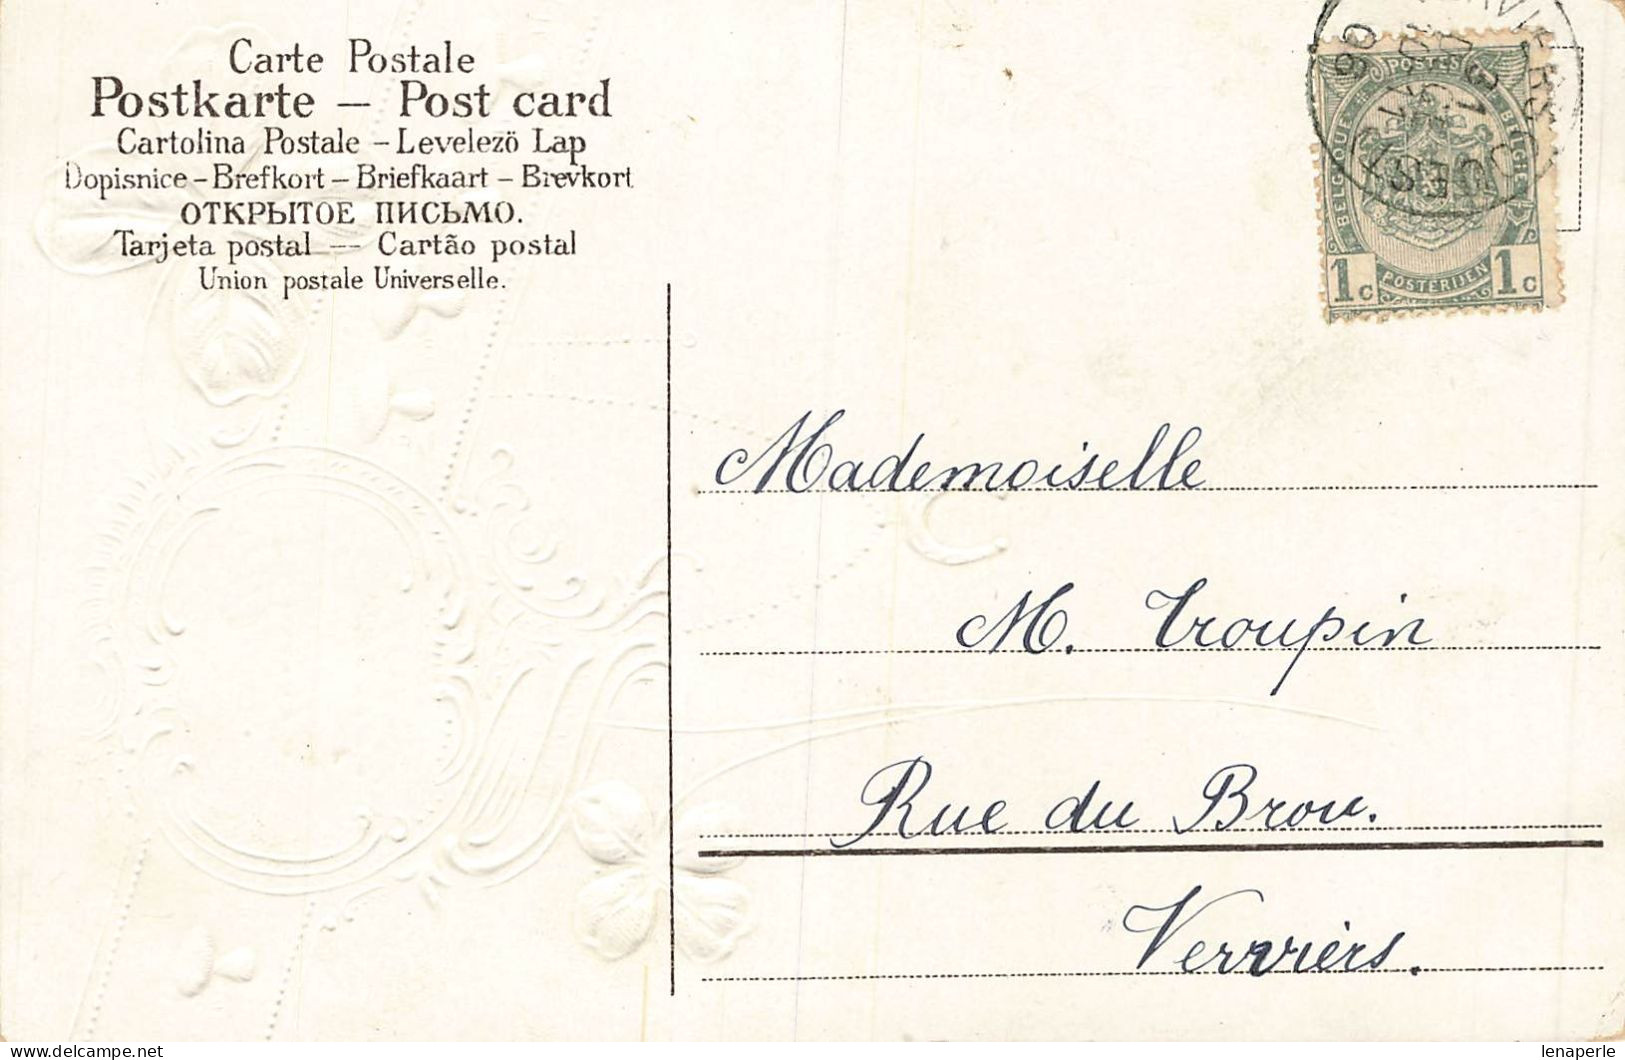 Carte Postale
Postkarte — Post card
Cartolina Postale – Levelezö Lap
Dopisnice – Brefkort – Briefkaart – Brevkort
ОТКРЫТОЕ ПИСЬМО.
Tarjeta postal — Cartão postal
Union postale Universelle.
POSTES
BELGIQUE
BELGIË
POSTERIJEN
1c 1c
VERVIERS
OUEST
Mademoiselle
M. Troupin
Rue du Brou.
Verviers.
delcampe.net
lenaperle